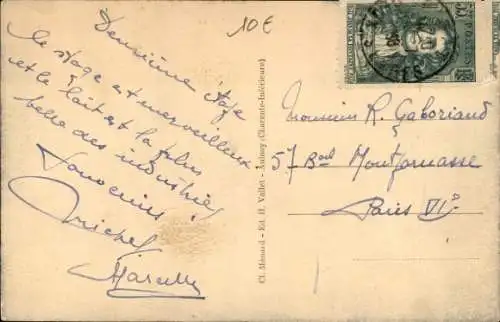 10€
Deuxième étape
le stage est merveilleux
et le lait est la plus
belle des industries
Souvenirs
Michel
Marcelle
Cl. Ménard - Ed. H. Vallet - Aulnay (Charente-Inférieure)
POSTES
Monsieur R. Gaboriaud
57 Boul Montparnasse
Paris VIº